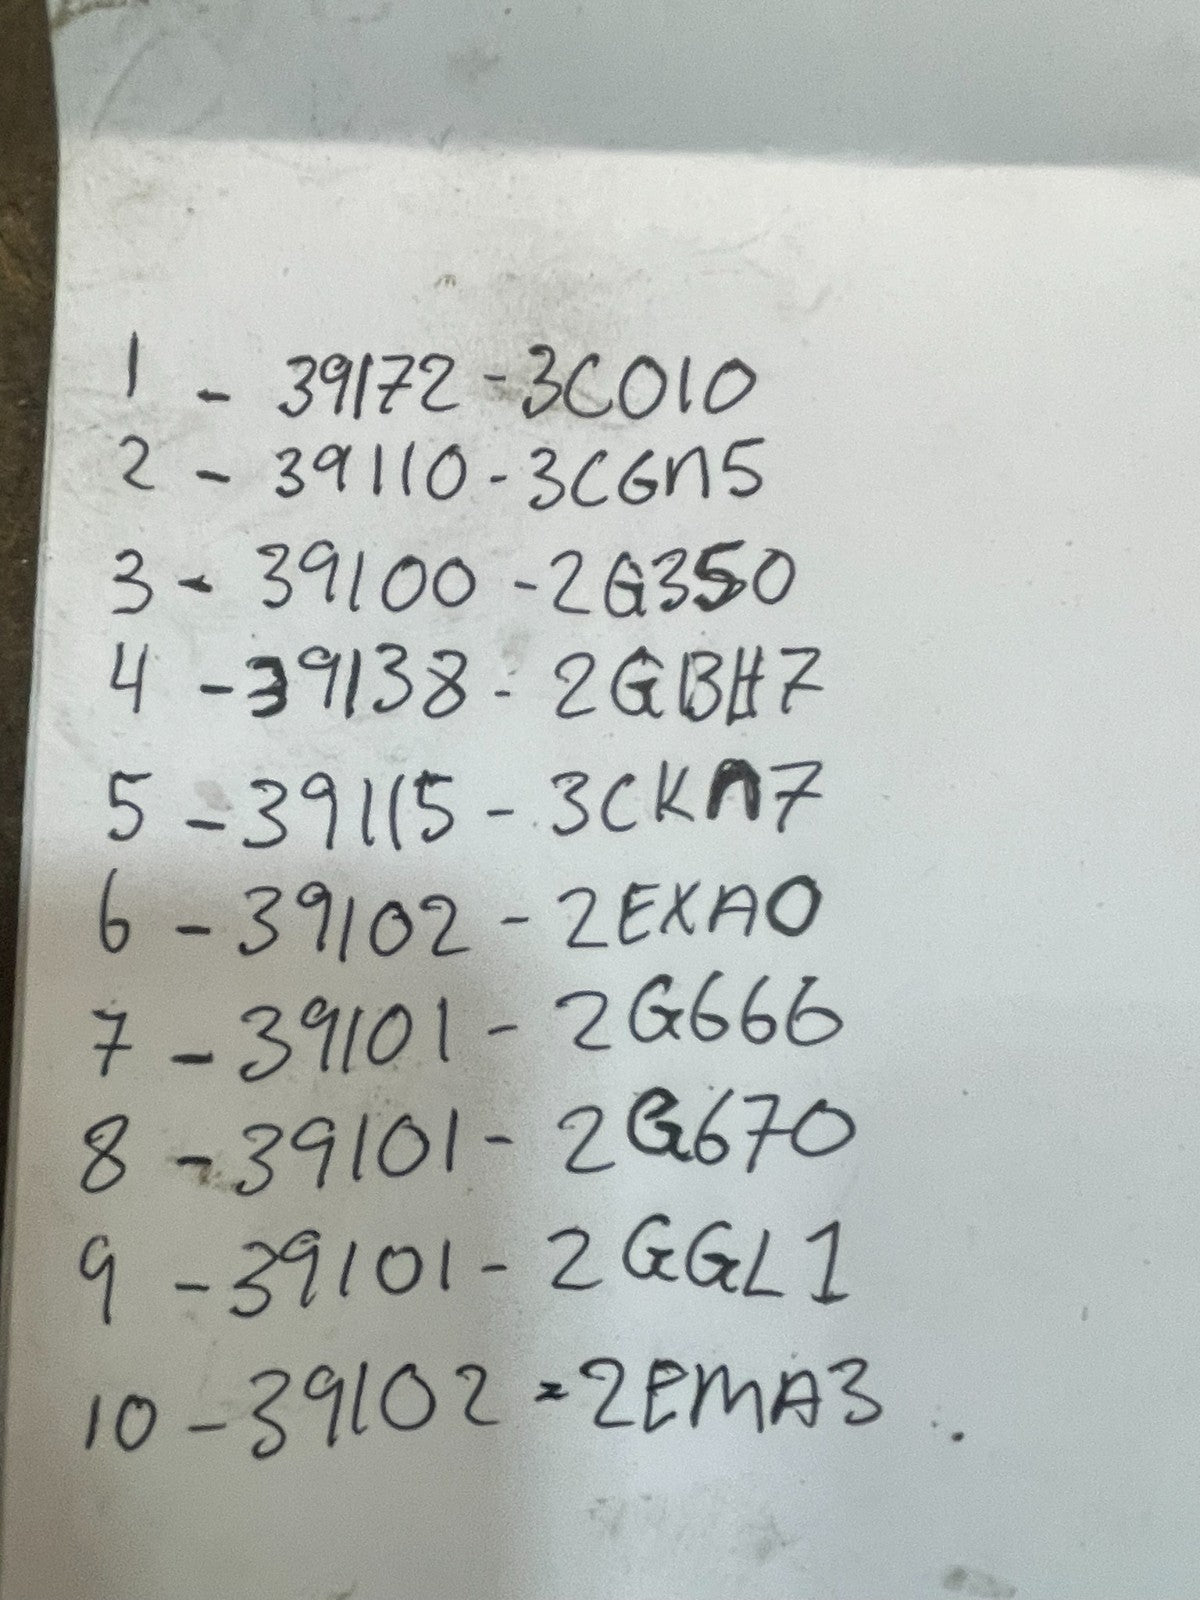 1 - 39172 - 3C010
2 - 39110 - 3CGN5
3 - 39100 - 2G350
4 - 39138 - 2GBH7
5 - 39115 - 3CKN7
6 - 39102 - 2EXA0
7 - 39101 - 2G666
8 - 39101 - 2G670
9 - 39101 - 2GGL1
10 - 39102 - 2EMA3